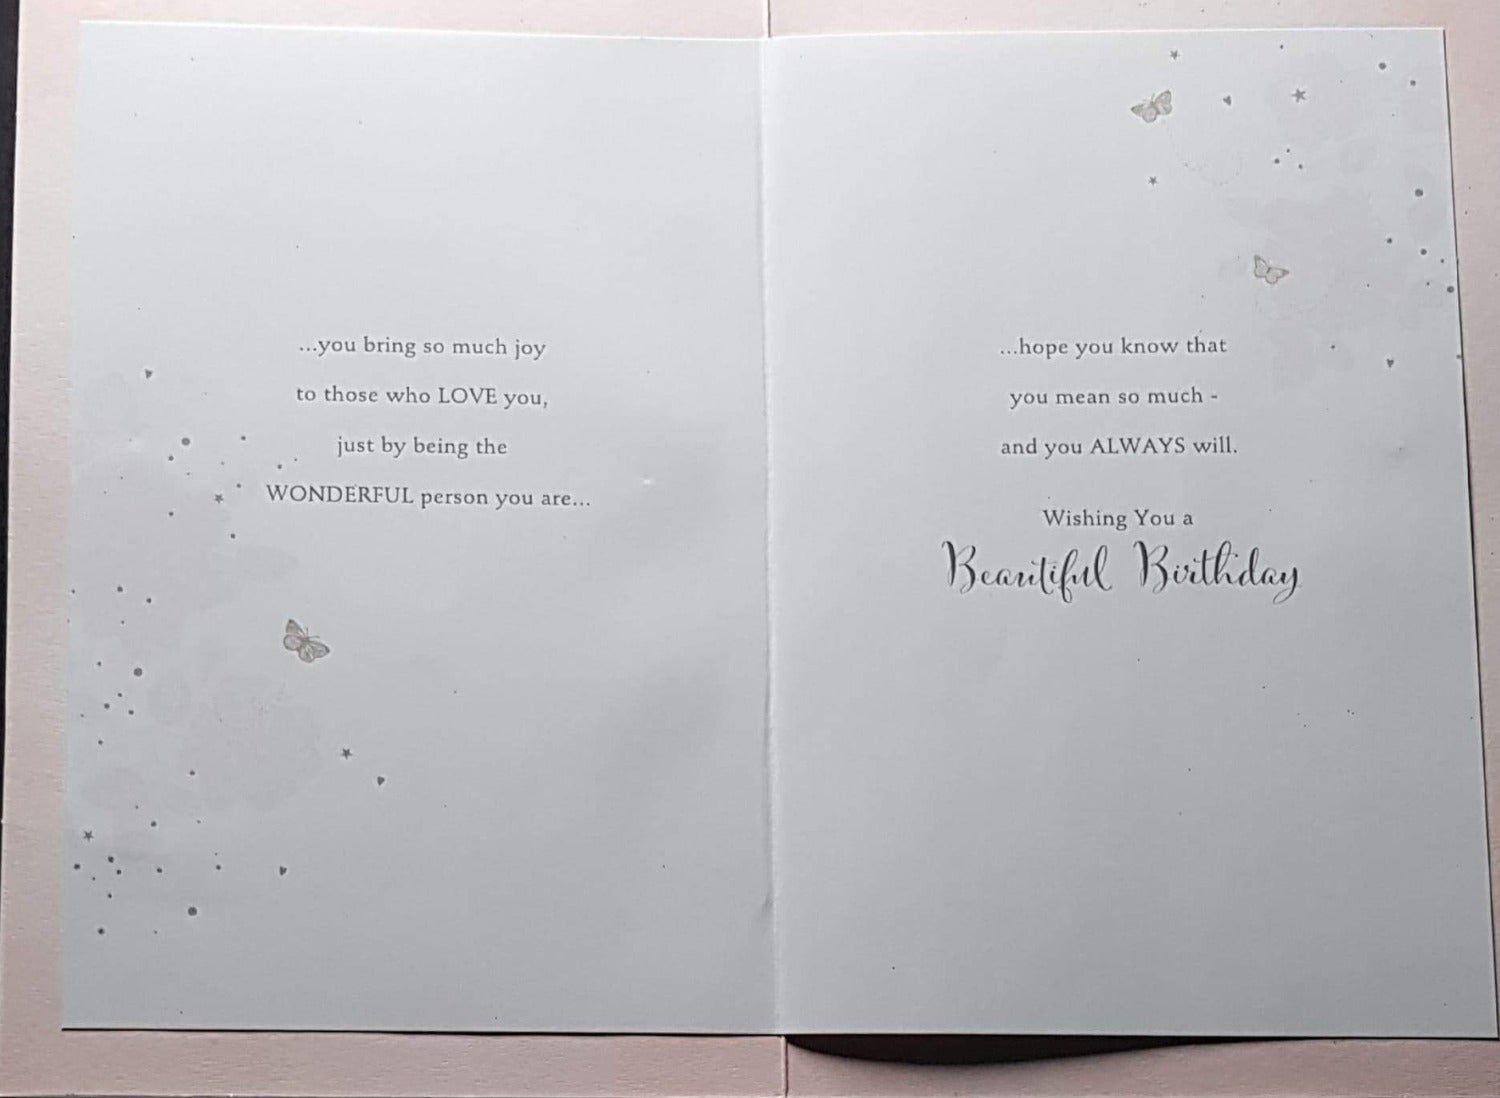 ...you bring so much joy
to those who LOVE you,
just by being the
WONDERFUL person you are...
...hope you know that
you mean so much -
and you ALWAYS will.
Wishing You a
Beautiful Birthday